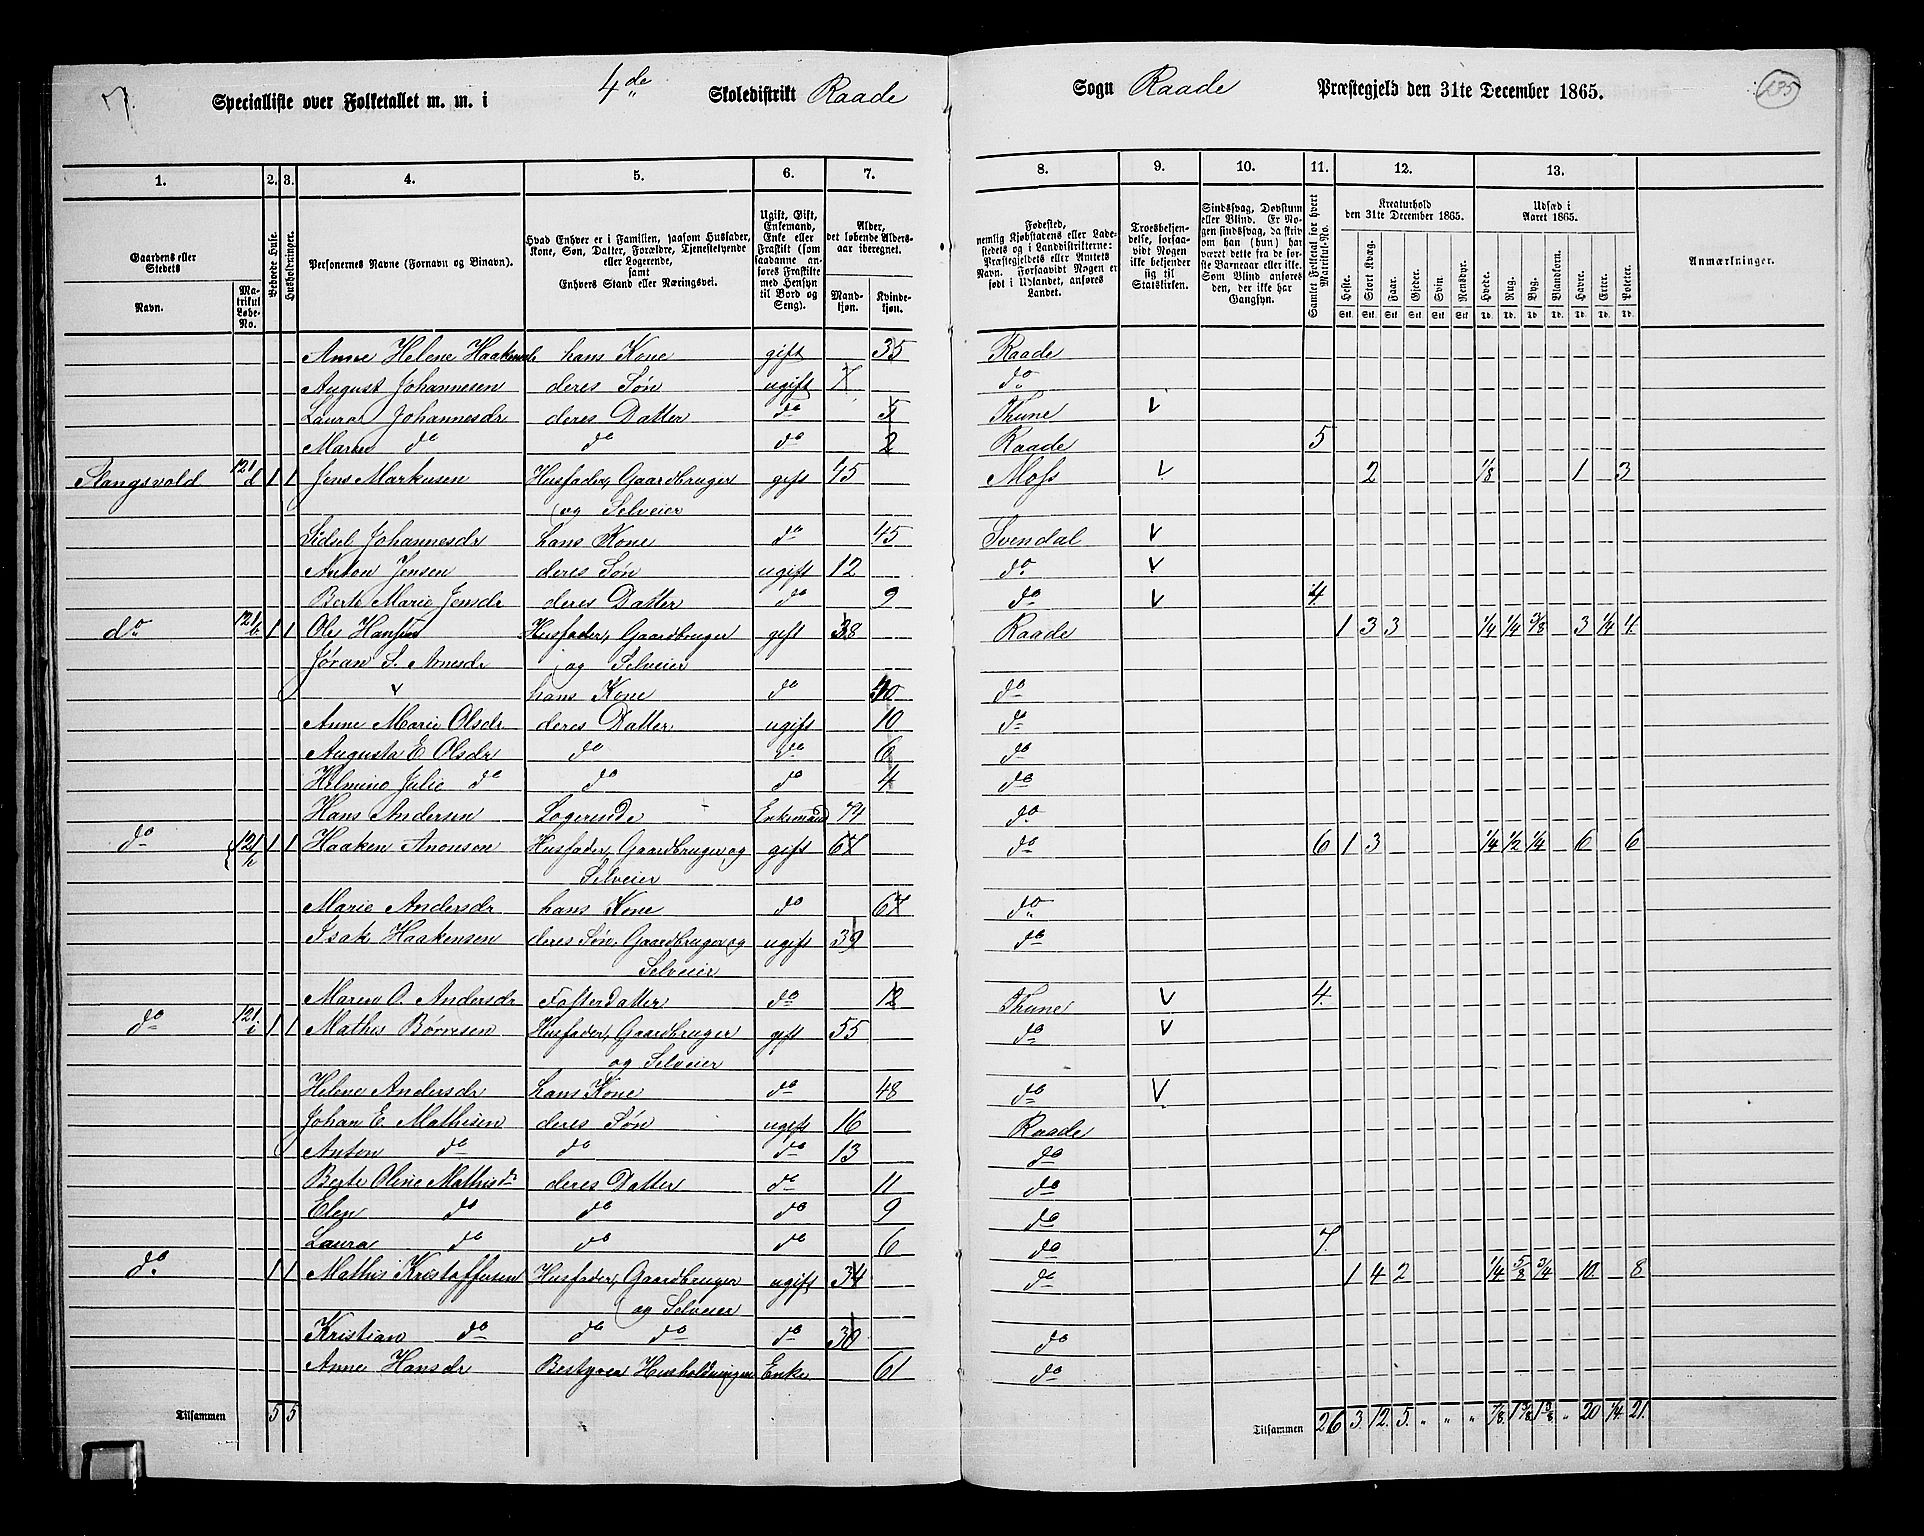 7.
Specialliste over Folketallet m. m. i 4de Skoledistrikt Raade Sogn Raade Præstegjeld den 31te December 1865.
135
1. 2. 3. 4. 5. 6. 7. 8. 9. 10. 11. 12. 13.
Gaardens eller Stedets Navn. Matrikul Løbe-No. Bebode Huse. Husholdninger. Personernes Navne (Fornavn og Binavn). Hvad Enhver er i Familien, saasom Husfader, Kone, Søn, Datter, Forældre, Tjenestetyende eller Logerende, samt Enhvers Stand eller Næringsvei. Ugift, Gift, Enkemand, Enke eller Fraskilt (som saadanne anføres Fraskilte med Hensyn til Bord og Seng). Alder, det løbende Aldersaar iberegnet. Mandkjøn. Kvindekjøn. Fødested, nemlig Kjøbstadens eller Ladestedets og i Landdistrikterne: Præstegjeldets eller Amtets Navn. Forsaavidt Nogen er født i Udlandet, anføres Landet. Troesbekjendelse, forsaavidt Nogen ikke bekjender sig til Statskirken. Sindssvag, Døvstum eller Blind. Er Nogen sindssvag, da skrives om han (hun) har været dette fra de første Barneaar eller ikke. Som Blind anføres den, der ikke har Gangsyn. Samlet Folketal for hvert Matrikul-No. Kreaturhold den 31te December 1865. Heste. Stort Kvæg. Faar. Gjeder. Svin. Rensdyr. Udsæd i Aaret 1865. Hvede. Rug. Byg. Blandkorn. Havre. Erter. Poteter. Anmærkninger.
Stk. Stk. Stk. Stk. Stk. Stk. Td. Td. Td. Td. Td. Td. Td.
Anne Helene Haakensdr hans Kone gift 35 Raade
August Johannesen deres Søn ugift 7 do
Laura Johannesdr deres Datter do 5 Thune v
Maren do do do 2 Raade 5
Stangsvold 121/d 1 1 Jens Markusen Husfader, Gaardbruger gift 45 Moss v 2 1/8 1 3
og Selveier
Sidsel Johannesdr hans Kone do 45 Svendal v
Anton Jensen deres Søn ugift 12 do v
Berte Marie Jensdr deres Datter do 9 do v 4.
do 121/b 1 1 Ole Hansen Husfader, Gaardbruger gift 38 Raade 1 3 3 1/4 1/4 3/8 3 1/4 4.
Jøran S. Arnesdr og Selveier
v hans Kone do 40 do
Anne Marie Olsdr deres Datter ugift 10 do
Augusta E. Olsdr do do 6 do
Helmine Julie do do do 4 do
Hans Andersen Logerende Enkemand 74 do
do 121/h 1 1 Haaken Anonsen Husfader, Gaardbruger og gift 67 do 6 1 3 1/4 1/2 1/4 6 6
Selveier
Marie Andersdr hans Kone do 67 do
Isak Haakensen deres Søn, Gaardbruger og ugift 39 do
Selveier
Maren O. Andersdr Fosterdatter do 12 Thune v 4.
do 121/i 1 1 Mathis Børresen Husfader, Gaardbruger gift 55 do v
og Selveier
Helene Andersdr hans Kone do 48 do v
Johan E. Mathisen deres Søn ugift 16 Raade
Anton do do do 13 do
Berte Oline Mathisdr deres Datter do 11 do
Elen do do do 9 do
Laura do do do 6 do 7.
do 1 1 Mathis Kristoffersen Husfader, Gaardbruger ugift 34 do 1 4 2 1/4 5/8 3/4 10. 8
og Selveier
Kristian do do do do 30 do
Anne Hansdr Bestyrer Husholdningen Enke 61 do
Tilsammen 5 5 Tilsammen 26 3. 12. 5. " " " 7/8. 1 3/8 1 5/8 " 20 1/4. 21.